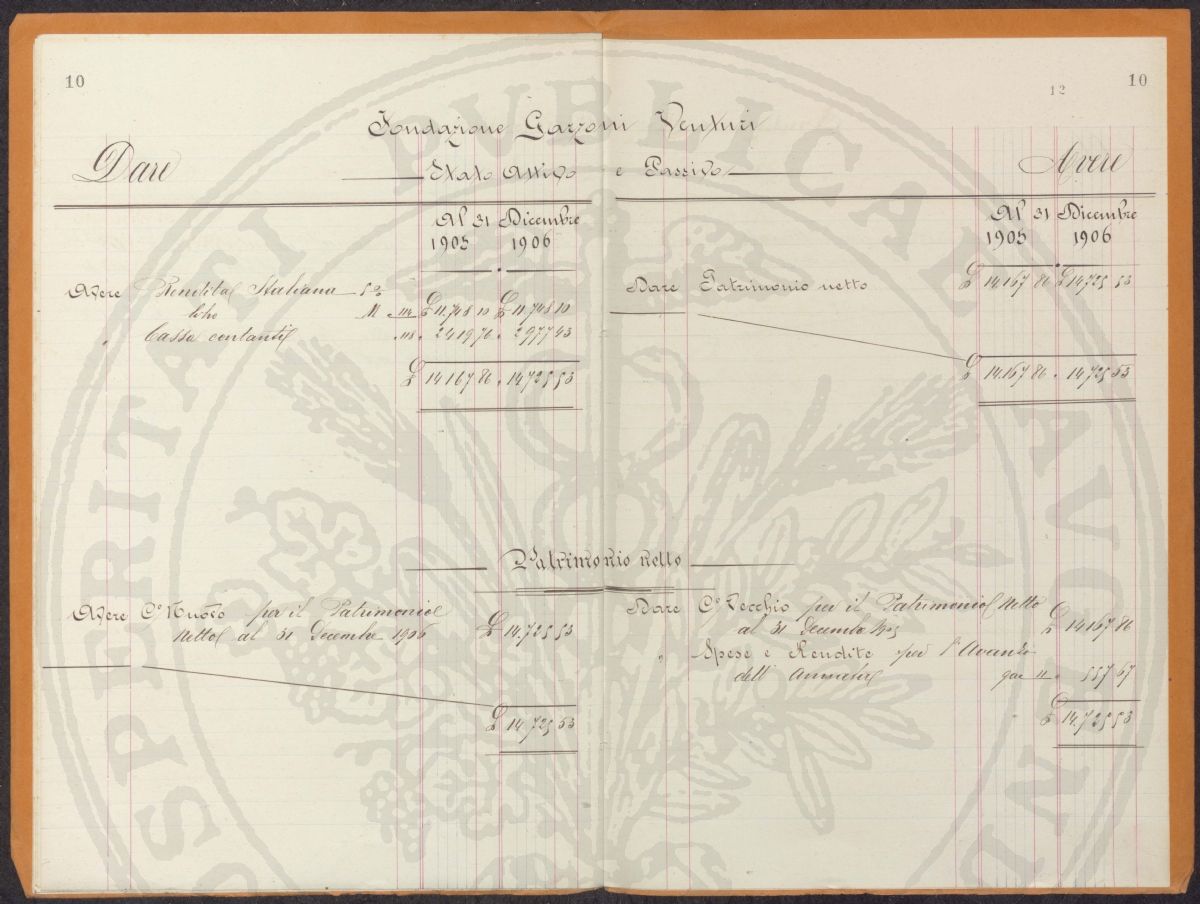 10
12 10
Fondazione Garzoni Venturi
Dare Stato Attivo e Passivo Avere
Al 31 Dicembre
1905 1906
Avere Rendita Italiana 5%
M 114 £ 11.748 10 £ 11.748 10
" Cassa contanti " 118 " 2419 76 " 2977 43
£ 14.167 86 " 14.725 53
Al 31 Dicembre
1905 1906
Dare Patrimonio netto £ 14.167 86 £ 14.725 53
£ 14.167 86 " 14.725 53
Patrimonio netto
Avere C.o Nuovo per il Patrimonio
Netto al 31 Decembre 1906 £ 14.725 53
£ 14.725 53
Dare C.o Vecchio per il Patrimonio Netto
al 31 Decembre 1905 £ 14.167 86
" Spese e Rendite per l'Avanzo
dell' Annata 11 " 557 67
£ 14.725 53
PROSPERITATI PUBLICAE AUGENDAE